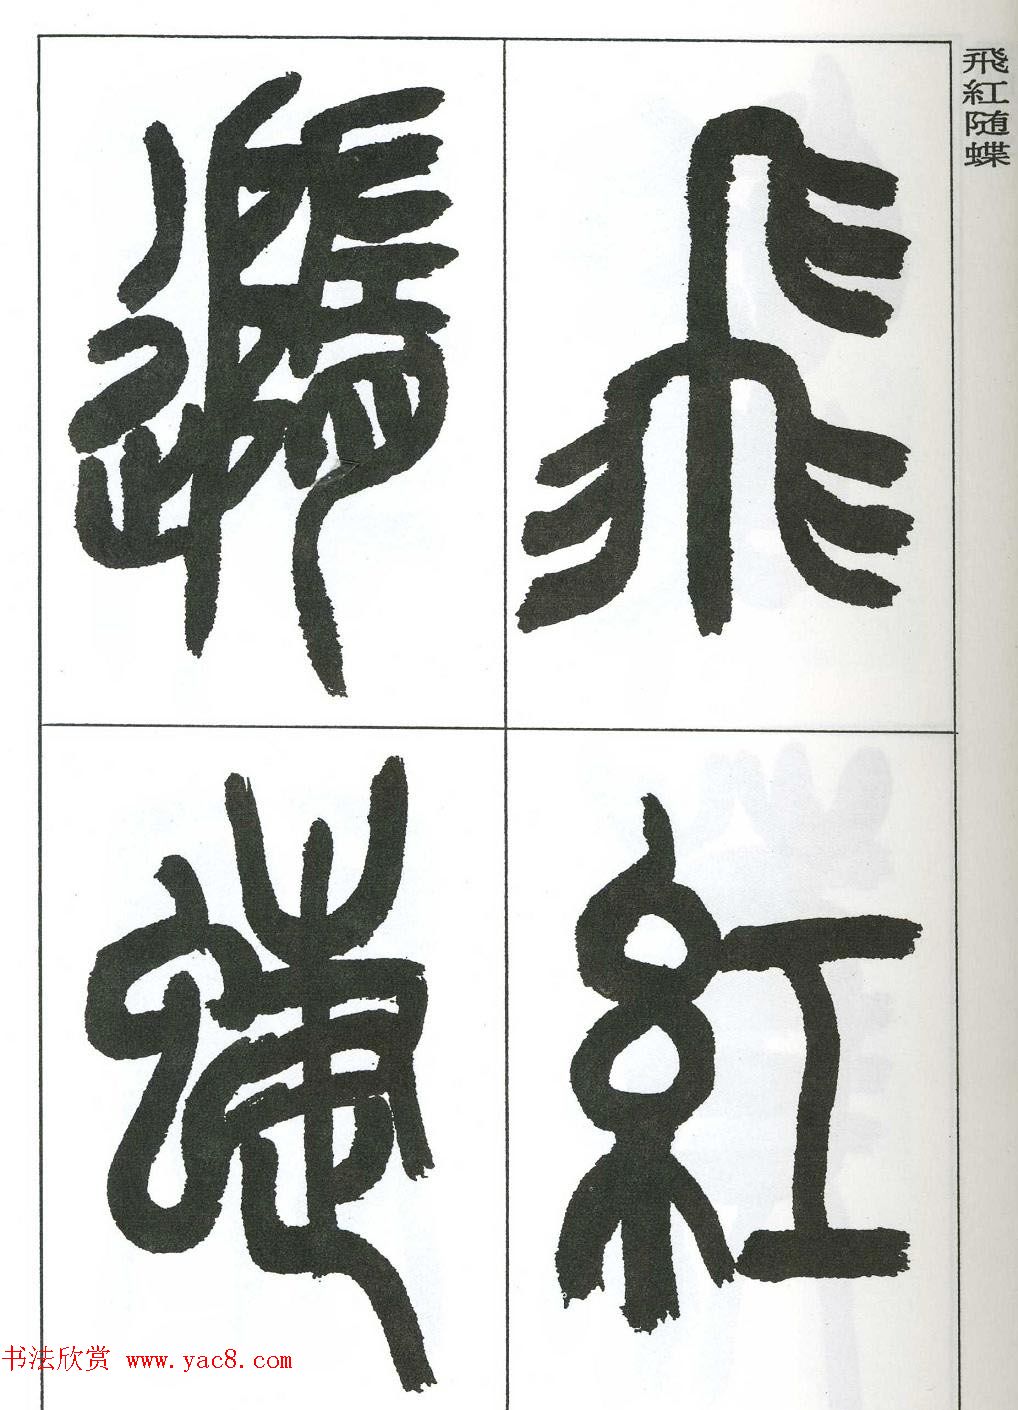 飛紅随蝶
飛紅
隨蝶
书法欣赏 www.yac8.com